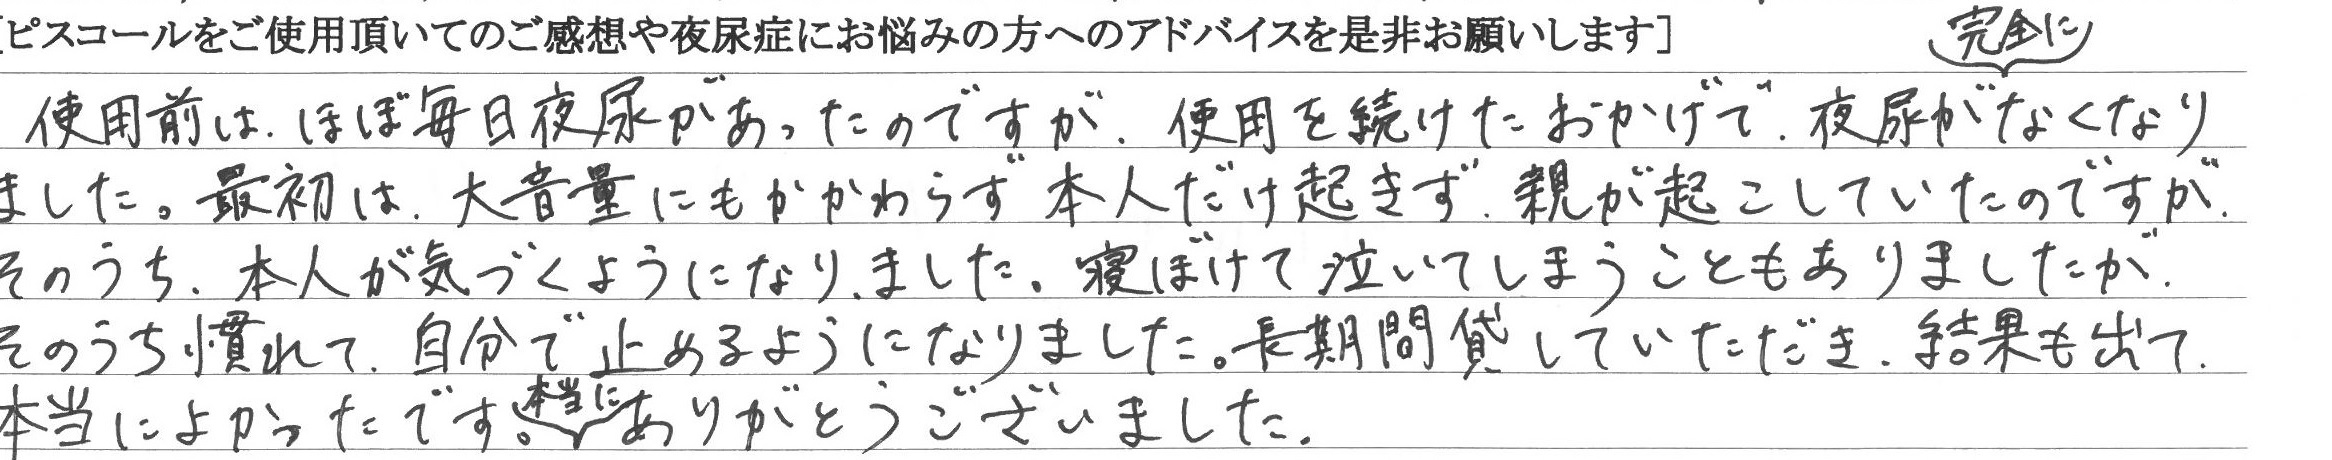 [ピスコールをご使用頂いてのご感想や夜尿症にお悩みの方へのアドバイスを是非お願いします]
使用前は、ほぼ毎日夜尿があったのですが、使用を続けたおかげで、夜尿が完全になくなり
ました。最初は、大音量にもかかわらず本人だけ起きず、親が起こしていたのですが、
そのうち、本人が気づくようになりました。寝ぼけて泣いてしまうこともありましたが、
そのうち慣れて、自分で止めるようになりました。長期間貸していただき、結果も出て、
本当によかったです。本当にありがとうございました。